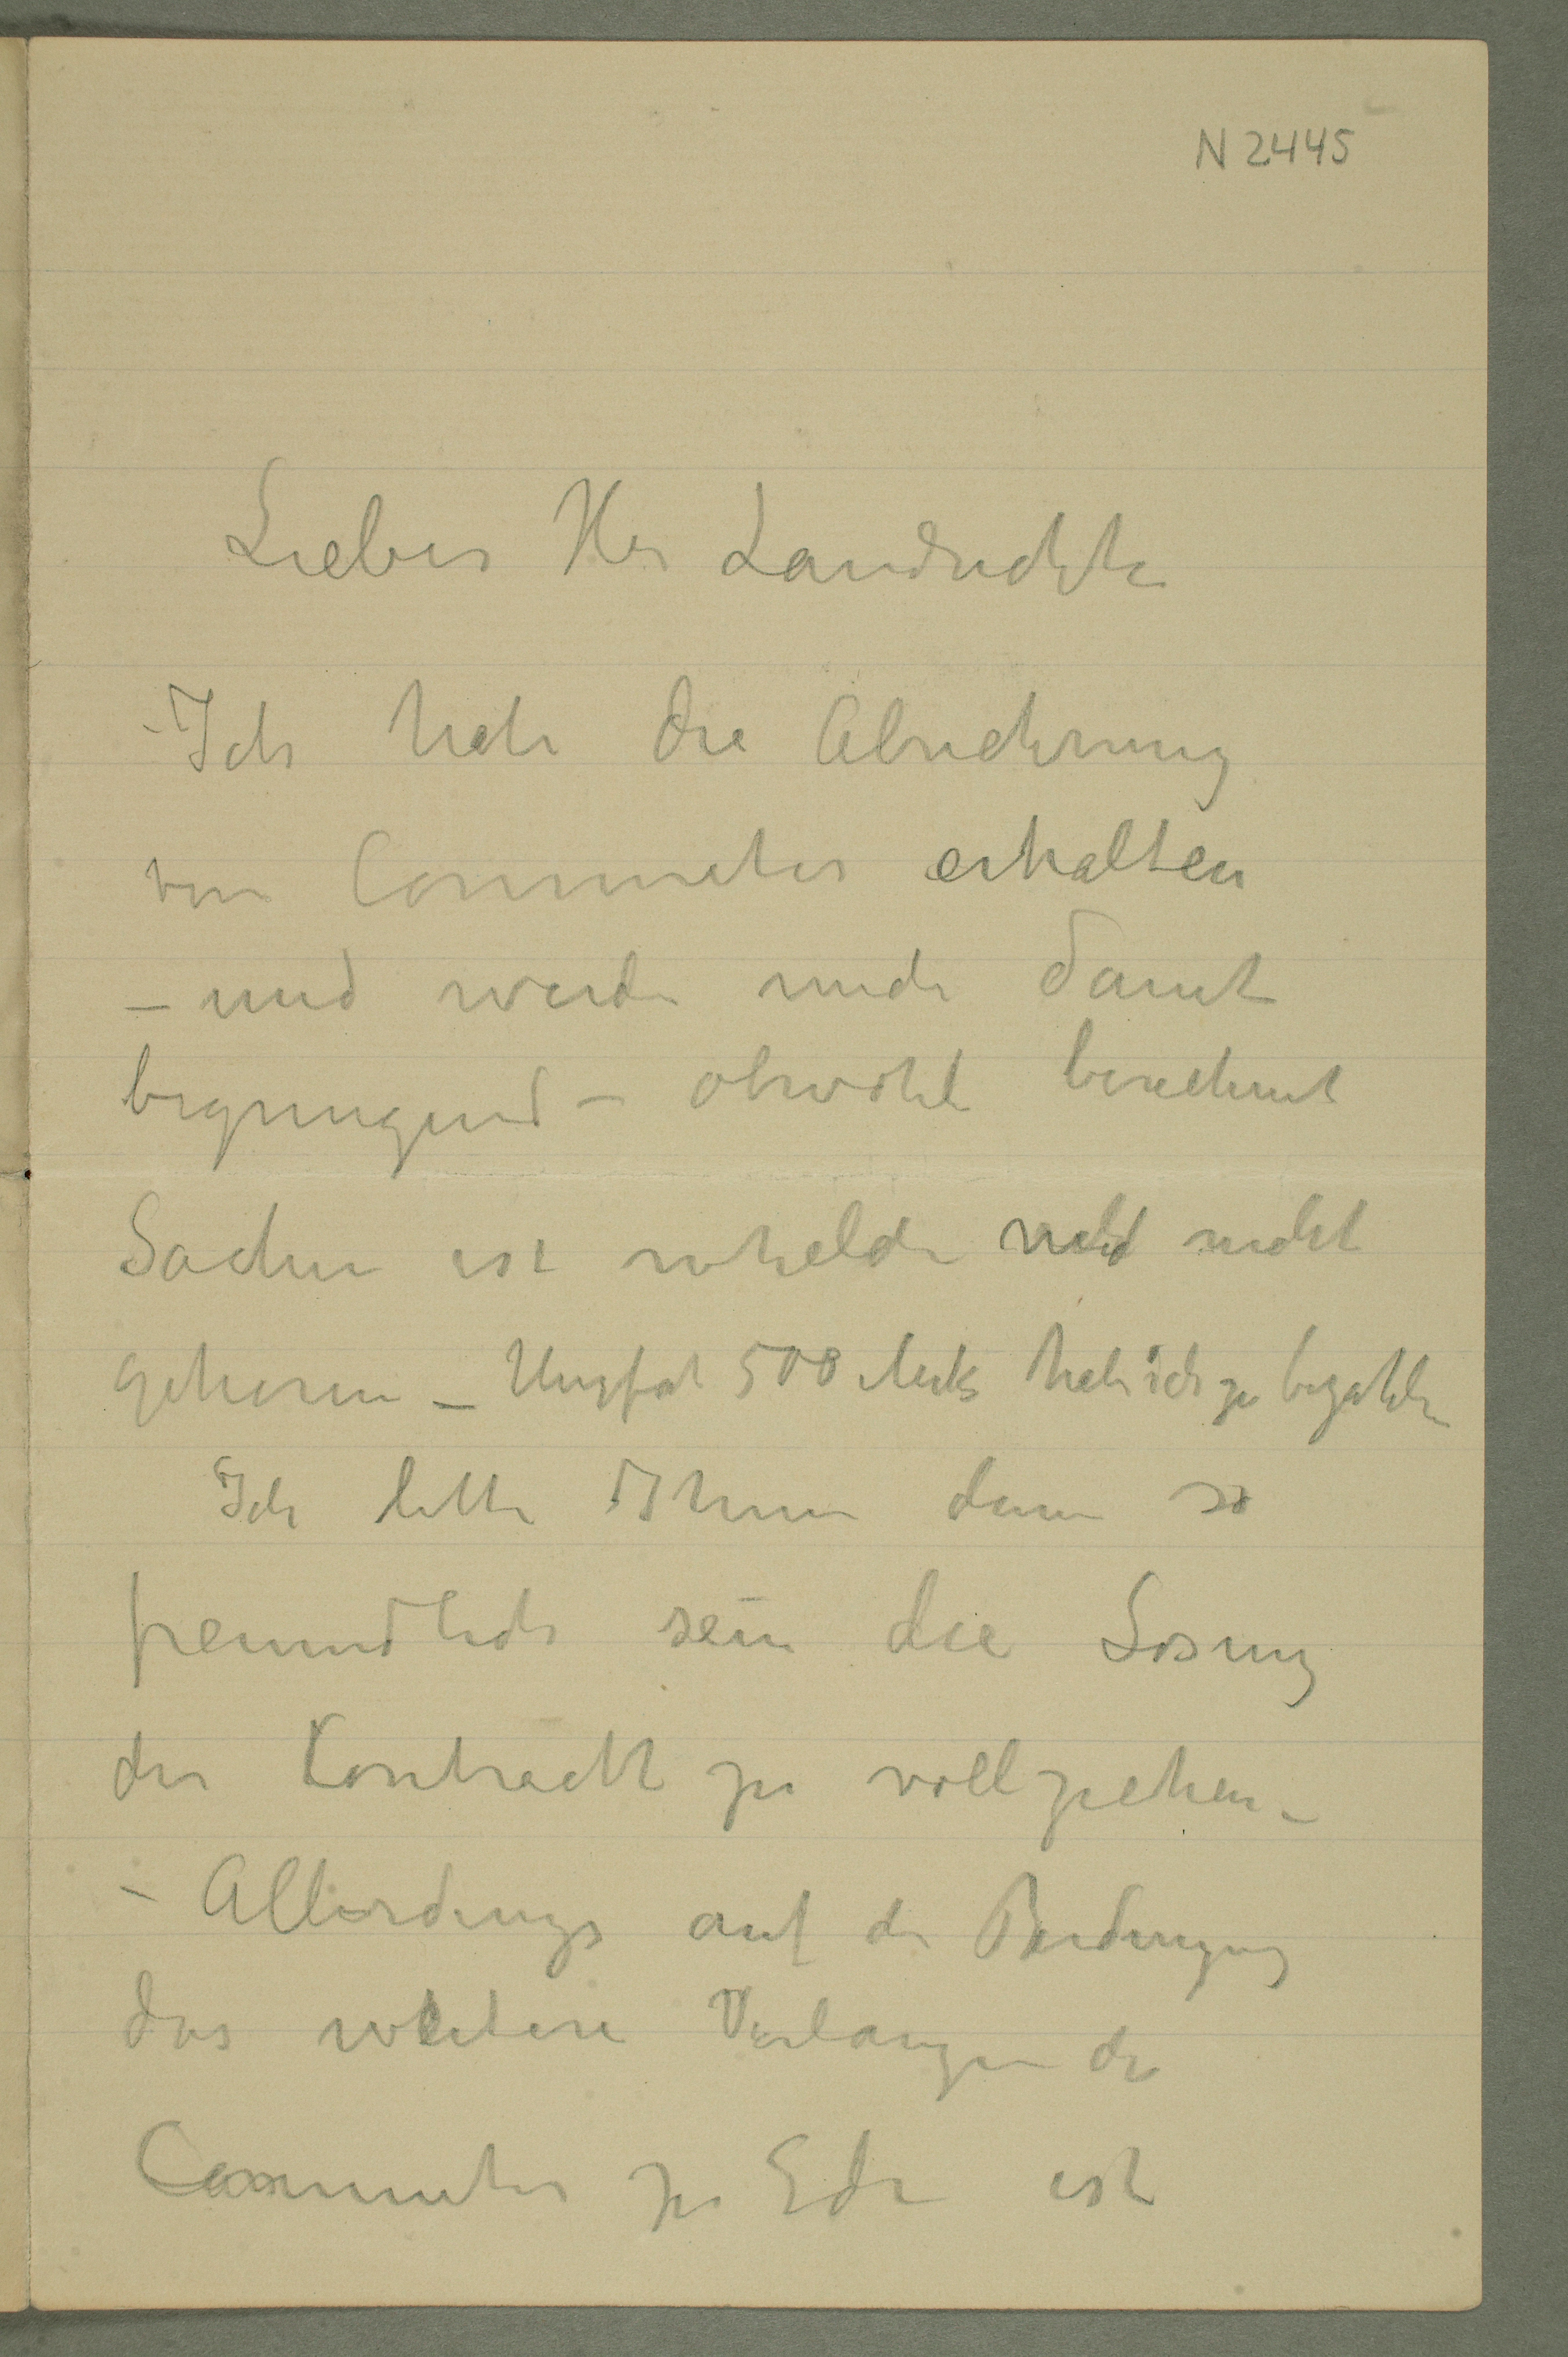 N 2445
Lieber Her Landrichter
Ich habe die Abrechnung
von Commeter erhalten
– und werde mich damit
begnügend – obwohl berechnet
Sachen ist welche nicht
gehoren – Ungefar 500 Marks habe ich zu bezahlen
Ich bitte Ihnen dann so
freundlich sein die Losung
der Kontrackt zu vollziehen –
– Allerdings auf der Bedingung
das weitere Verlangen der
Commeter zu Ede ist